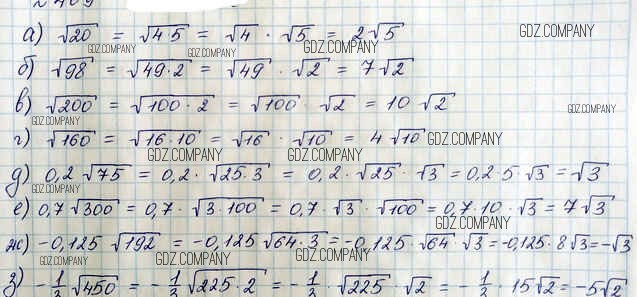 а) √20 = √4·5 = √4 · √5 = 2√5
GDZ.COMPANY GDZ.COMPANY GDZ.COMPANY GDZ.COMPANY
б) √98 = √49·2 = √49 · √2 = 7√2
в) √200 = √100·2 = √100 · √2 = 10·√2
GDZ.COMPANY GDZ.COMPANY
г) √160 = √16·10 = √16 · √10 = 4√10 GDZ.COMPANY
GDZ.COMPANY GDZ.COMPANY
д) 0,2·√75 = 0,2·√25·3 = 0,2·√25·√3 = 0,2·5·√3 = √3
GDZ.COMPANY
е) 0,7√300 = 0,7·√3·100 = 0,7·√3·√100 = 0,7·10·√3 = 7√3
GDZ.COMPANY
ж) -0,125√192 = -0,125√64·3 = -0,125·√64·√3 = -0,125·8√3 = -√3
GDZ.COMPANY GDZ.COMPANY GDZ.COMPANY
з) -1/3√450 = -1/3√225·2 = -1/3·√225·√2 = -1/3·15√2 = -5√2